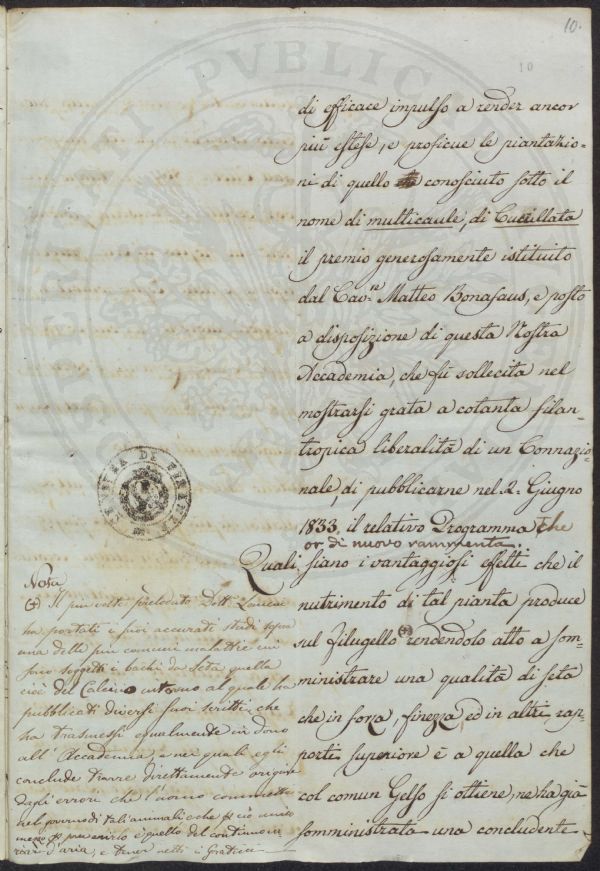 10.
10
di efficace impulso a render ancor
più estese, e proficue le piantazio=
ni di quello conosciuto sotto il
nome di multicaule, di Cucullata
il premio generosamente istituito
dal Cav.re Matteo Bonafaus, e posto
a disposizione di questa Nostra
Accademia, che fù sollecita nel
mostrarsi grata a cotanta filan=
tropica liberalità di un Connazio=
nale, di pubblicarne nel 2. Giugno
1833, il relativo Programma che
or di nuovo rammenta.
Quali siano i vantaggiosi effetti che il
nutrimento di tal pianta produce
sul filugello (*) rendendolo atto a som=
ministrare una qualità di seta
che in forza, finezza, ed in altri rap=
porti superiore è a quella che
col comun Gelso si ottiene, ne ha già
somministrata una concludente
Nota
(*) Il più volte prelodato Dott.
ha portati i suoi accurati studi sopra
una delle più comuni malattie cui
sono soggetti i bachi da seta quella
cioè del Calcino intorno al quale ha
pubblicati diversi suoi scritti, che
ha trasmessi egualmente in dono
all'Accademia, e nei quali egli
conclude trarre direttamente origine
dagli errori che l'uomo commette
nel governo di tali animali e che
e quello del
l'aria, e tener netti i